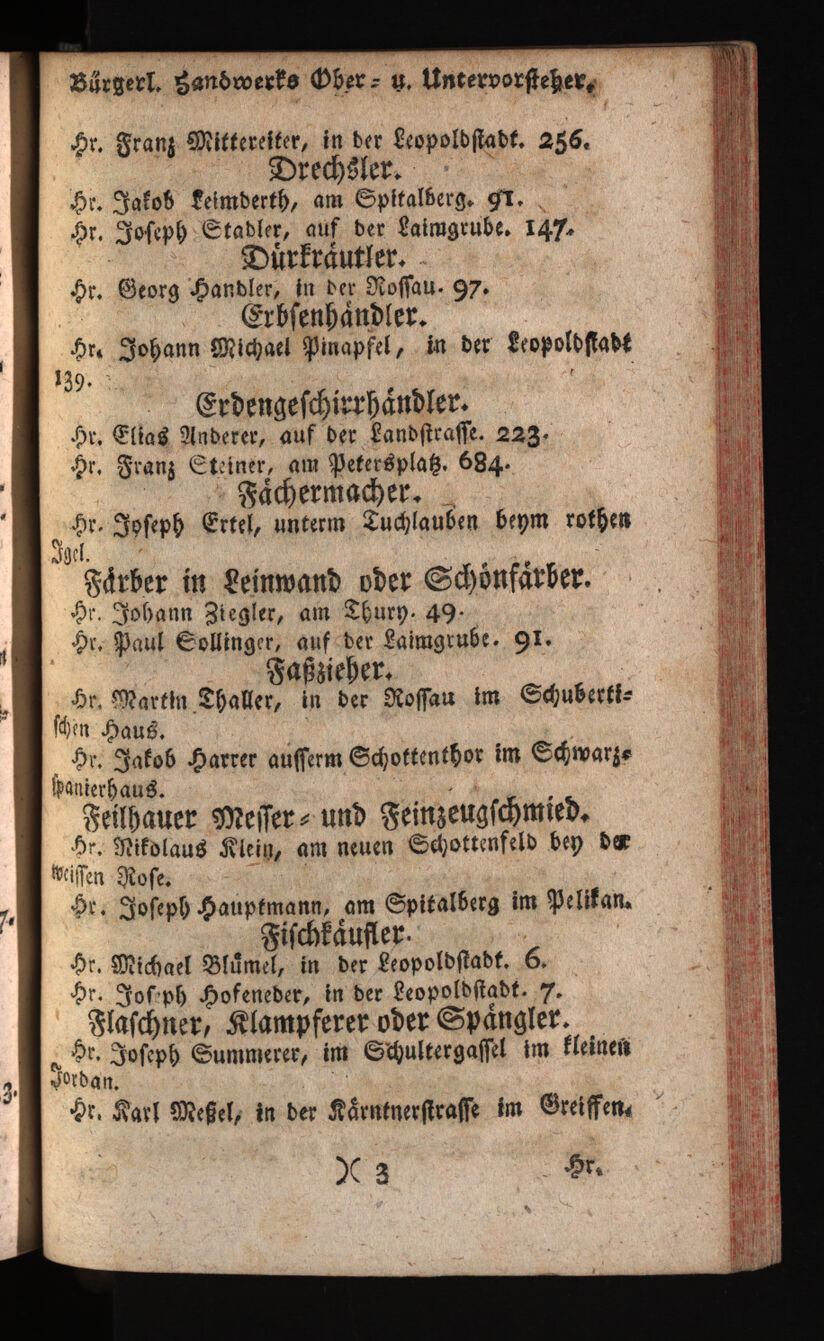 Bürgerl. Handwerks Ober- u. Untervorsteher.
Hr. Franz Mittereiter, in der Leopoldstadt. 256.
Drechsler.
Hr. Jakob Leimberth, am Spitalberg. 91.
Hr. Joseph Stadler, auf der Laimgrube. 147.
Dürkräutler.
Hr. Georg Handler, in der Rossau. 97.
Erbsenhändler.
Hr. Johann Michael Pinapfel, in der Leopoldstadt
139.
Erdengeschirrhändler.
Hr. Elias Anderer, auf der Landstrasse. 223.
Hr. Franz Steiner, am Petersplatz. 684.
Fächermacher.
Hr. Joseph Ertel, unterm Tuchlauben beym rothen
Igel.
Färber in Leinwand oder Schönfärber.
Hr. Johann Ziegler, am Thury. 49.
Hr. Paul Sollinger, auf der Laimgrube. 91.
Faßzieher.
Hr. Martin Thaller, in der Rossau im Schuberti-
schen Haus.
Hr. Jakob Harrer ausserm Schottenthor im Schwarz-
spanierhaus.
Feilhauer Messer- und Feinzeugschmied.
Hr. Nikolaus Klein, am neuen Schottenfeld bey der
weissen Rose.
Hr. Joseph Hauptmann, am Spitalberg im Pelikan.
Fischkäufler.
Hr. Michael Blümel, in der Leopoldstadt. 6.
Hr. Joseph Hofeneder, in der Leopoldstadt. 7.
Flaschner, Klampferer oder Spängler.
Hr. Joseph Summerer, im Schultergassel im kleinen
Jordan.
Hr. Karl Meßel, in der Kärntnerstrasse im Greiffen.
)( 3 Hr.